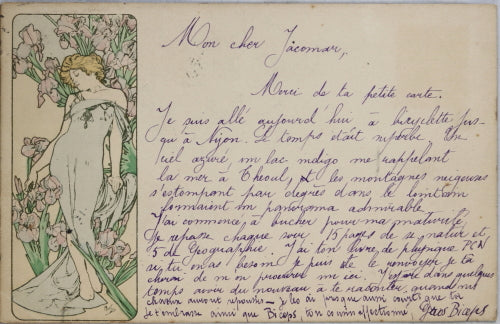 Mon cher Jacomar,
Merci de ta petite carte.
Je suis allé aujourd'hui à bicyclette jus-
qu'à Nyon. Le temps était superbe. Un
ciel azuré, un lac indigo me rappelant
la mer à Theoul, et les montagnes neigeuses
s'estompant par degrès dans le lointain
formaient un panorama admirable.
J'ai commencé à bucher pour ma maturité.
Je repasse chaque jour 15 pages de sc. natur. et
5 de Géographie. J'ai ton livre de physique PCN
si tu en as besoin je puis te le renvoyer je
de m'en procurer un ici. J'espère dans quelques
temps avoir du nouveau à te raconter, quand mes
cheveux auront repoussés - je les ai presque aussi courts que toi
je t'embrasse ainsi que Biceps, ton cousin affectionné,
Biceps